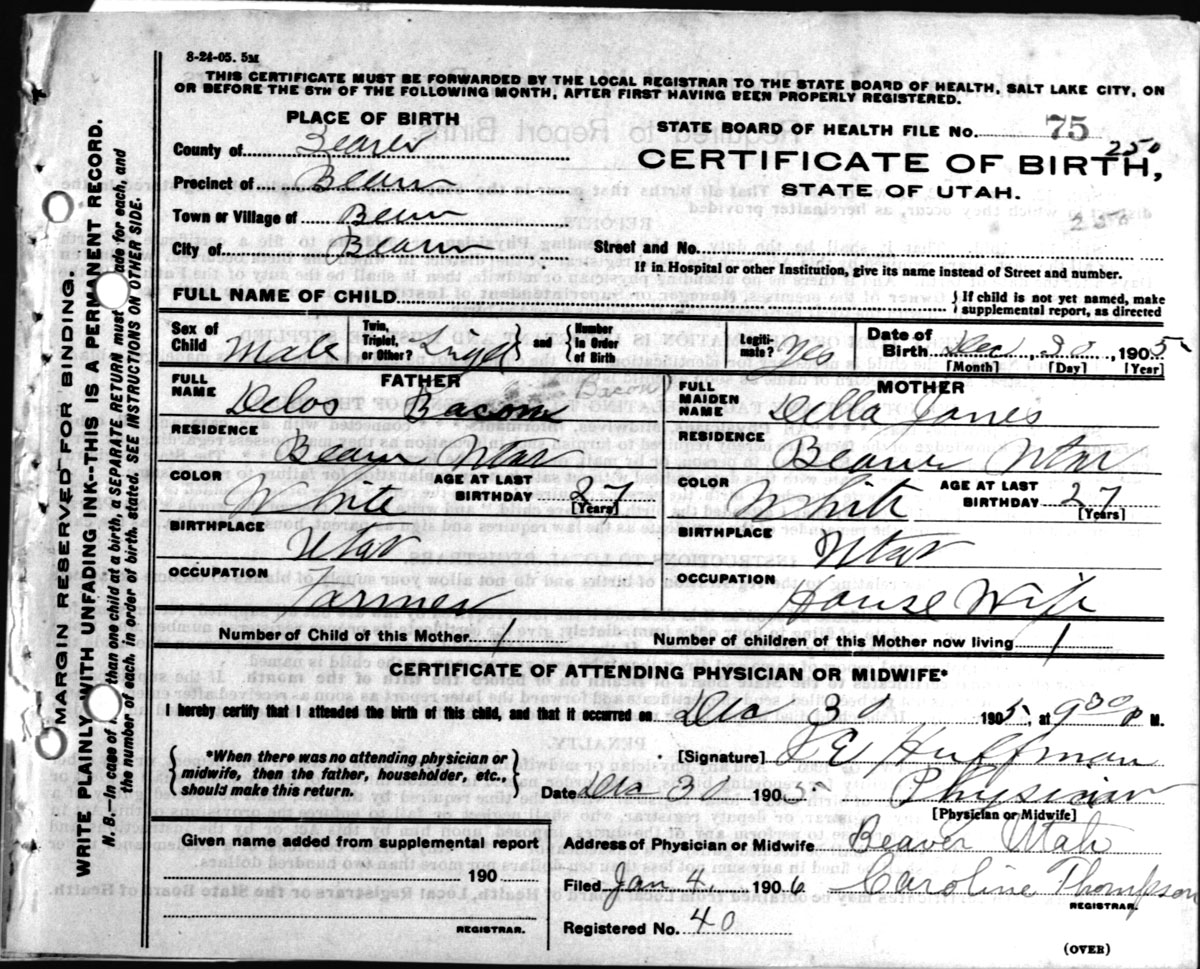 8-24-05. 5M
THIS CERTIFICATE MUST BE FORWARDED BY THE LOCAL REGISTRAR TO THE STATE BOARD OF HEALTH, SALT LAKE CITY, ON
OR BEFORE THE 5TH OF THE FOLLOWING MONTH, AFTER FIRST HAVING BEEN PROPERLY REGISTERED.
PLACE OF BIRTH
County of Beaver
Precinct of Beaver
Town or Village of Beaver
City of Beaver
STATE BOARD OF HEALTH FILE No. 75
250
CERTIFICATE OF BIRTH,
STATE OF UTAH.
Street and No.
If in Hospital or other Institution, give its name instead of Street and number.
FULL NAME OF CHILD
If child is not yet named, make
supplemental report, as directed
Sex of Child Male
Twin, Triplet, or Other? Single and Number in Order of Birth
Legitimate? Yes
Date of Birth Dec, 30, 1905
[Month] [Day] [Year]
FATHER
FULL NAME Delos Bacon
Bacon
RESIDENCE Beaver Utah
COLOR White
AGE AT LAST BIRTHDAY 27
[Years]
BIRTHPLACE Utah
OCCUPATION Farmer
MOTHER
FULL MAIDEN NAME Della Jones
RESIDENCE Beaver Utah
COLOR White
AGE AT LAST BIRTHDAY 27
[Years]
BIRTHPLACE Utah
OCCUPATION House Wife
Number of Child of this Mother 1
Number of children of this Mother now living 1
CERTIFICATE OF ATTENDING PHYSICIAN OR MIDWIFE*
I hereby certify that I attended the birth of this child, and that it occurred on Dec 30 1905, at 9 30 P M.
*When there was no attending physician or
midwife, then the father, householder, etc.,
should make this return.
[Signature] E Huffman
Date Dec 30 1905 Physician
[Physician or Midwife]
Given name added from supplemental report
190
REGISTRAR.
Address of Physician or Midwife Beaver Utah
Filed Jan 4, 1906 Caroline Thompson
REGISTRAR.
Registered No. 40
(OVER)
MARGIN RESERVED FOR BINDING.
WRITE PLAINLY WITH UNFADING INK--THIS IS A PERMANENT RECORD.
N. B.--In case of than one child at a birth, a SEPARATE RETURN must ade for each, and
the number of each, in order of birth, stated. SEE INSTRUCTIONS ON OTHER SIDE.